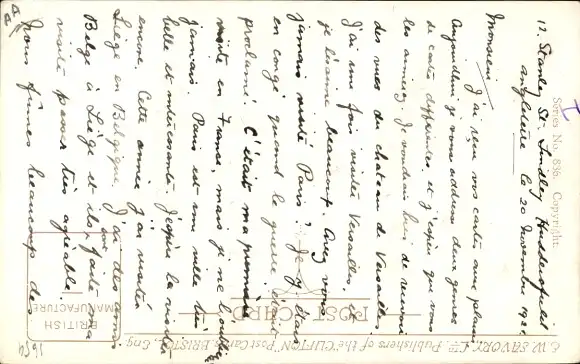 12, Stanley St. Lindley Huddersfield
Angleterre Le 20 novembre 1929
Monsieur,
J'ai reçu vos cartes avec plaisir
Aujourd'hui je vous adresse deux genres
de cartes différentes et j'espère que vous
les aimerez. Je voudrais bien de recevoir
des vues du chateau de Versailles.
J'ai une fois visité Versailles, et
je l'aime beaucoup. Avez vous
jamais visité Paris? J'y étais
en congé quand la guerre était
proclamé. C'était ma première
visite en France, mais je ne l'oublie
jamais. Paris est une ville très
belle et intéressante. J'espère la visiter
encore. Cette année j'ai visité
Liège en Belgique. J'ai des amis
Belge à Liège et ils ont faite ma
visite passer très agréable.
Nous fûmes beaucoup de
Series No. 836. Copyright.
POST CARD
E.W. SAVORY, Ltd. Publishers of the "CLIFTON" Post Card, BRISTOL, Eng.
BRITISH
MANUFACTURE